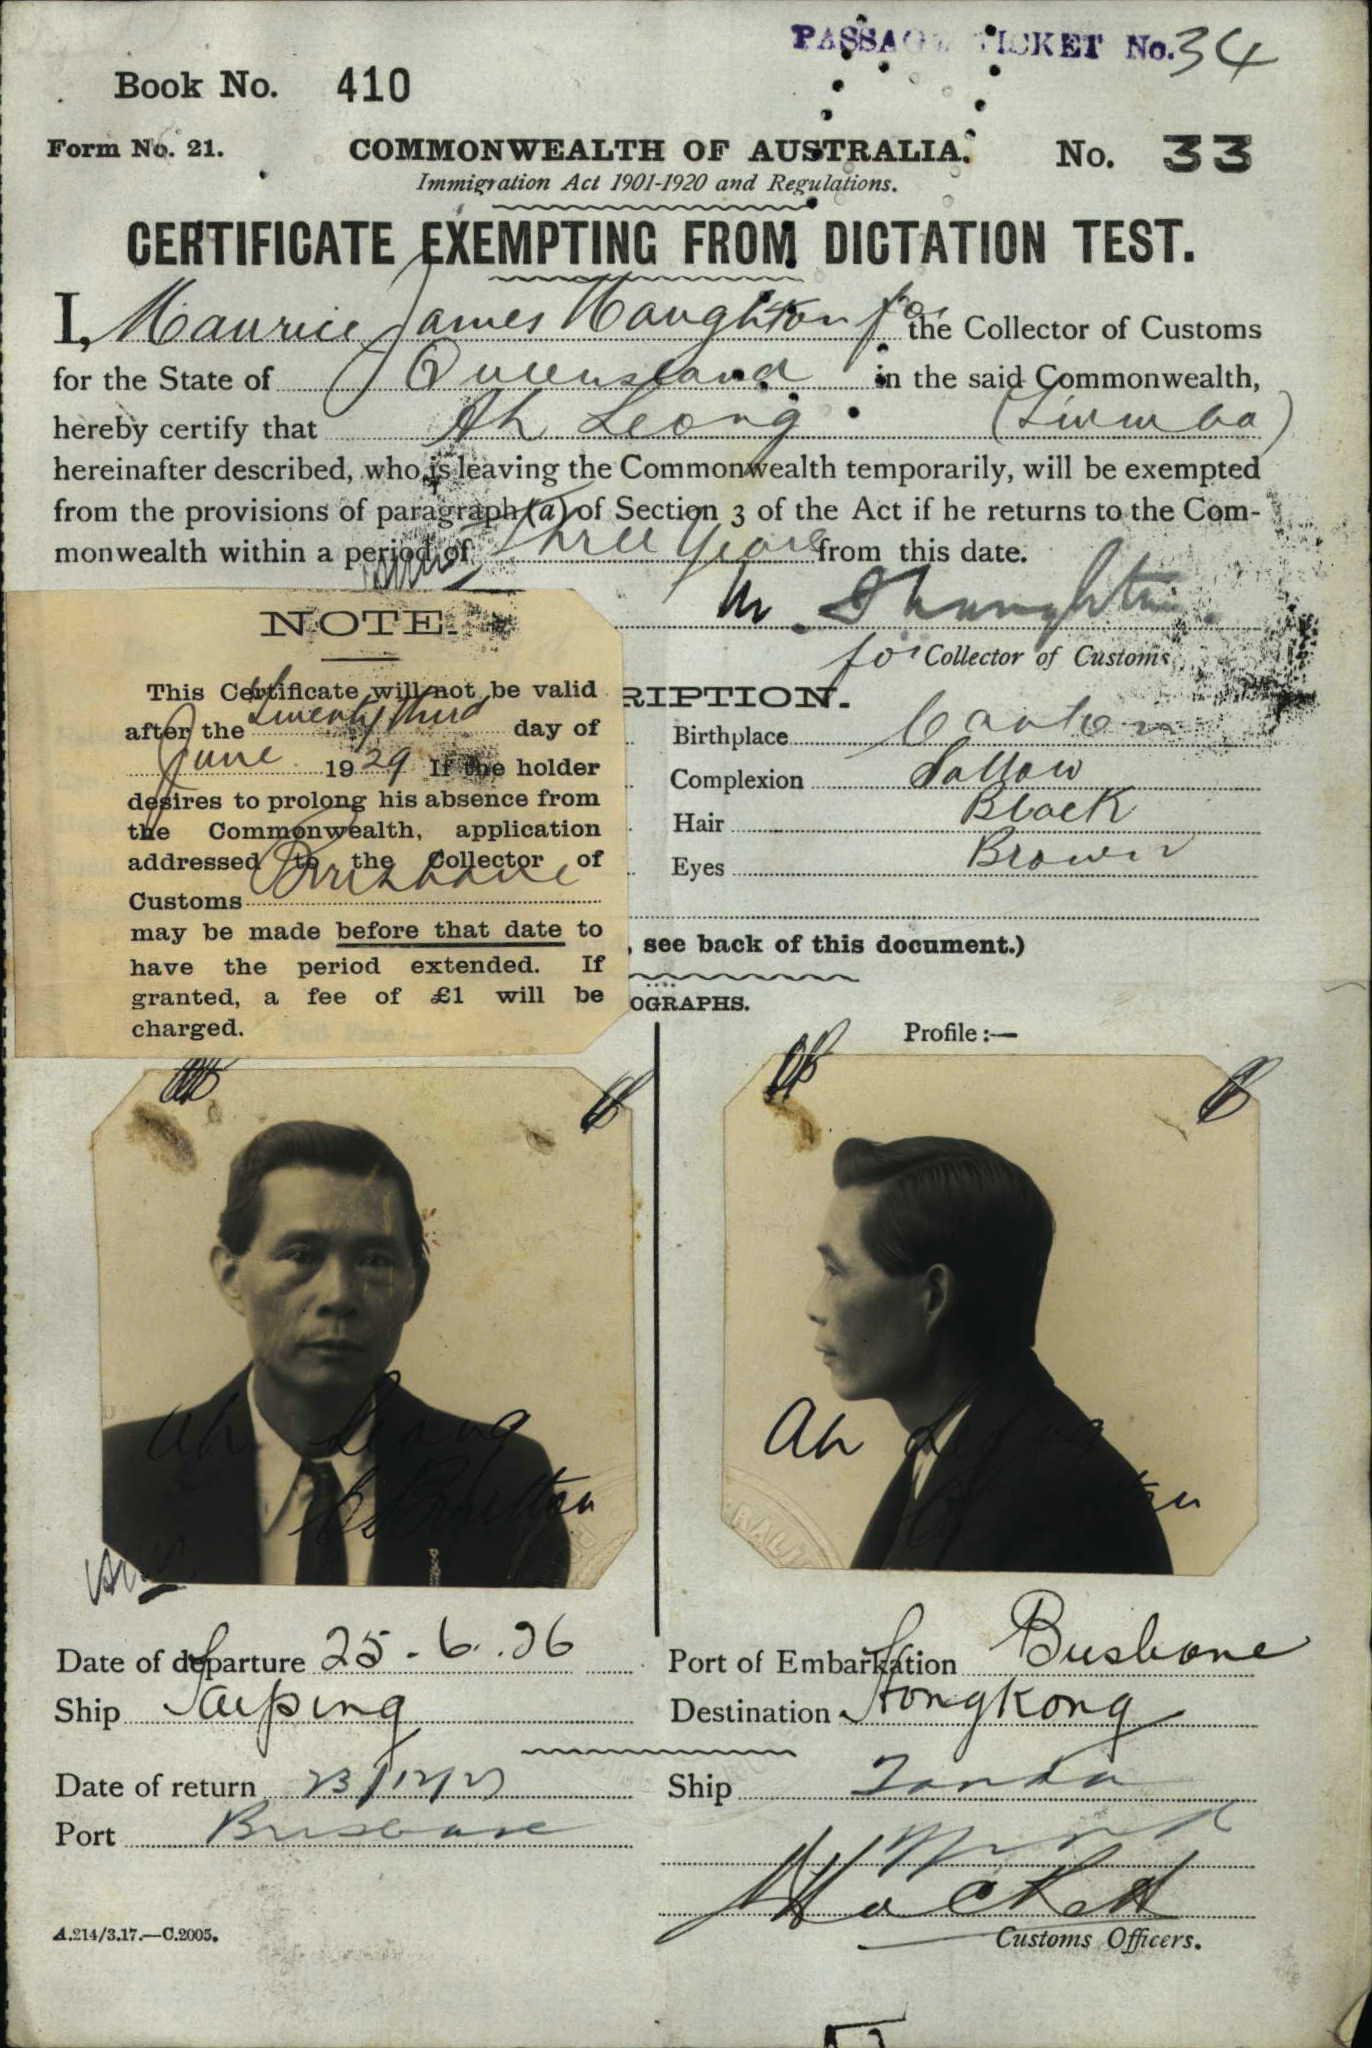 PASSAGE TICKET No. 34
Book No. 410
Form No. 21. COMMONWEALTH OF AUSTRALIA. No. 33
Immigration Act 1901-1920 and Regulations.
CERTIFICATE EXEMPTING FROM DICTATION TEST.
I, Maurice James Naughton for the Collector of Customs
for the State of Queensland in the said Commonwealth,
hereby certify that Ah Leong
hereinafter described, who is leaving the Commonwealth temporarily, will be exempted
from the provisions of paragraph (a) of Section 3 of the Act if he returns to the Com-
monwealth within a period of Three Years from this date.
for Collector of Customs
NOTE.
This Certificate will not be valid
after the twenty third day of
June 1929 If the holder
desires to prolong his absence from
the Commonwealth, application
addressed to the Collector of
Customs Brisbane
may be made before that date to
have the period extended. If
granted, a fee of £1 will be
charged.
RIPTION.
Birthplace Canton
Complexion Sallow
Hair Black
Eyes Brown
, see back of this document.)
OGRAPHS.
Profile :—
Ah Leong
Ah Leong
Date of departure 25.6.26
Port of Embarkation Brisbane
Ship Taiping
Destination Hongkong
Date of return 23/12/27
Ship Tanda
Port Brisbane
Customs Officers.
A.214/3.17.—C.2005.